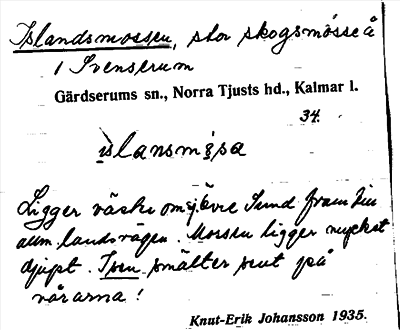 Islandsmossen, stor skogsmosse å
1 Svenserum
Gärdserums sn., Norra Tjusts hd., Kalmar l.
34.
ı̨slansmɜsa
Ligger väster om Övre Sund fram till
allm. landsvägen. Mossen ligger mycket
djupt. Isen smälter sent på
vårarna!
Knut-Erik Johansson 1935.